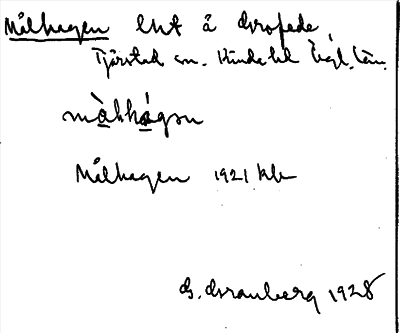 Målhagen lht å Grofede,
Tjärstad sn. Kinda hd Ögl. län.
màlhágən
Målhagen 1921 kb
G. Granberg 1928